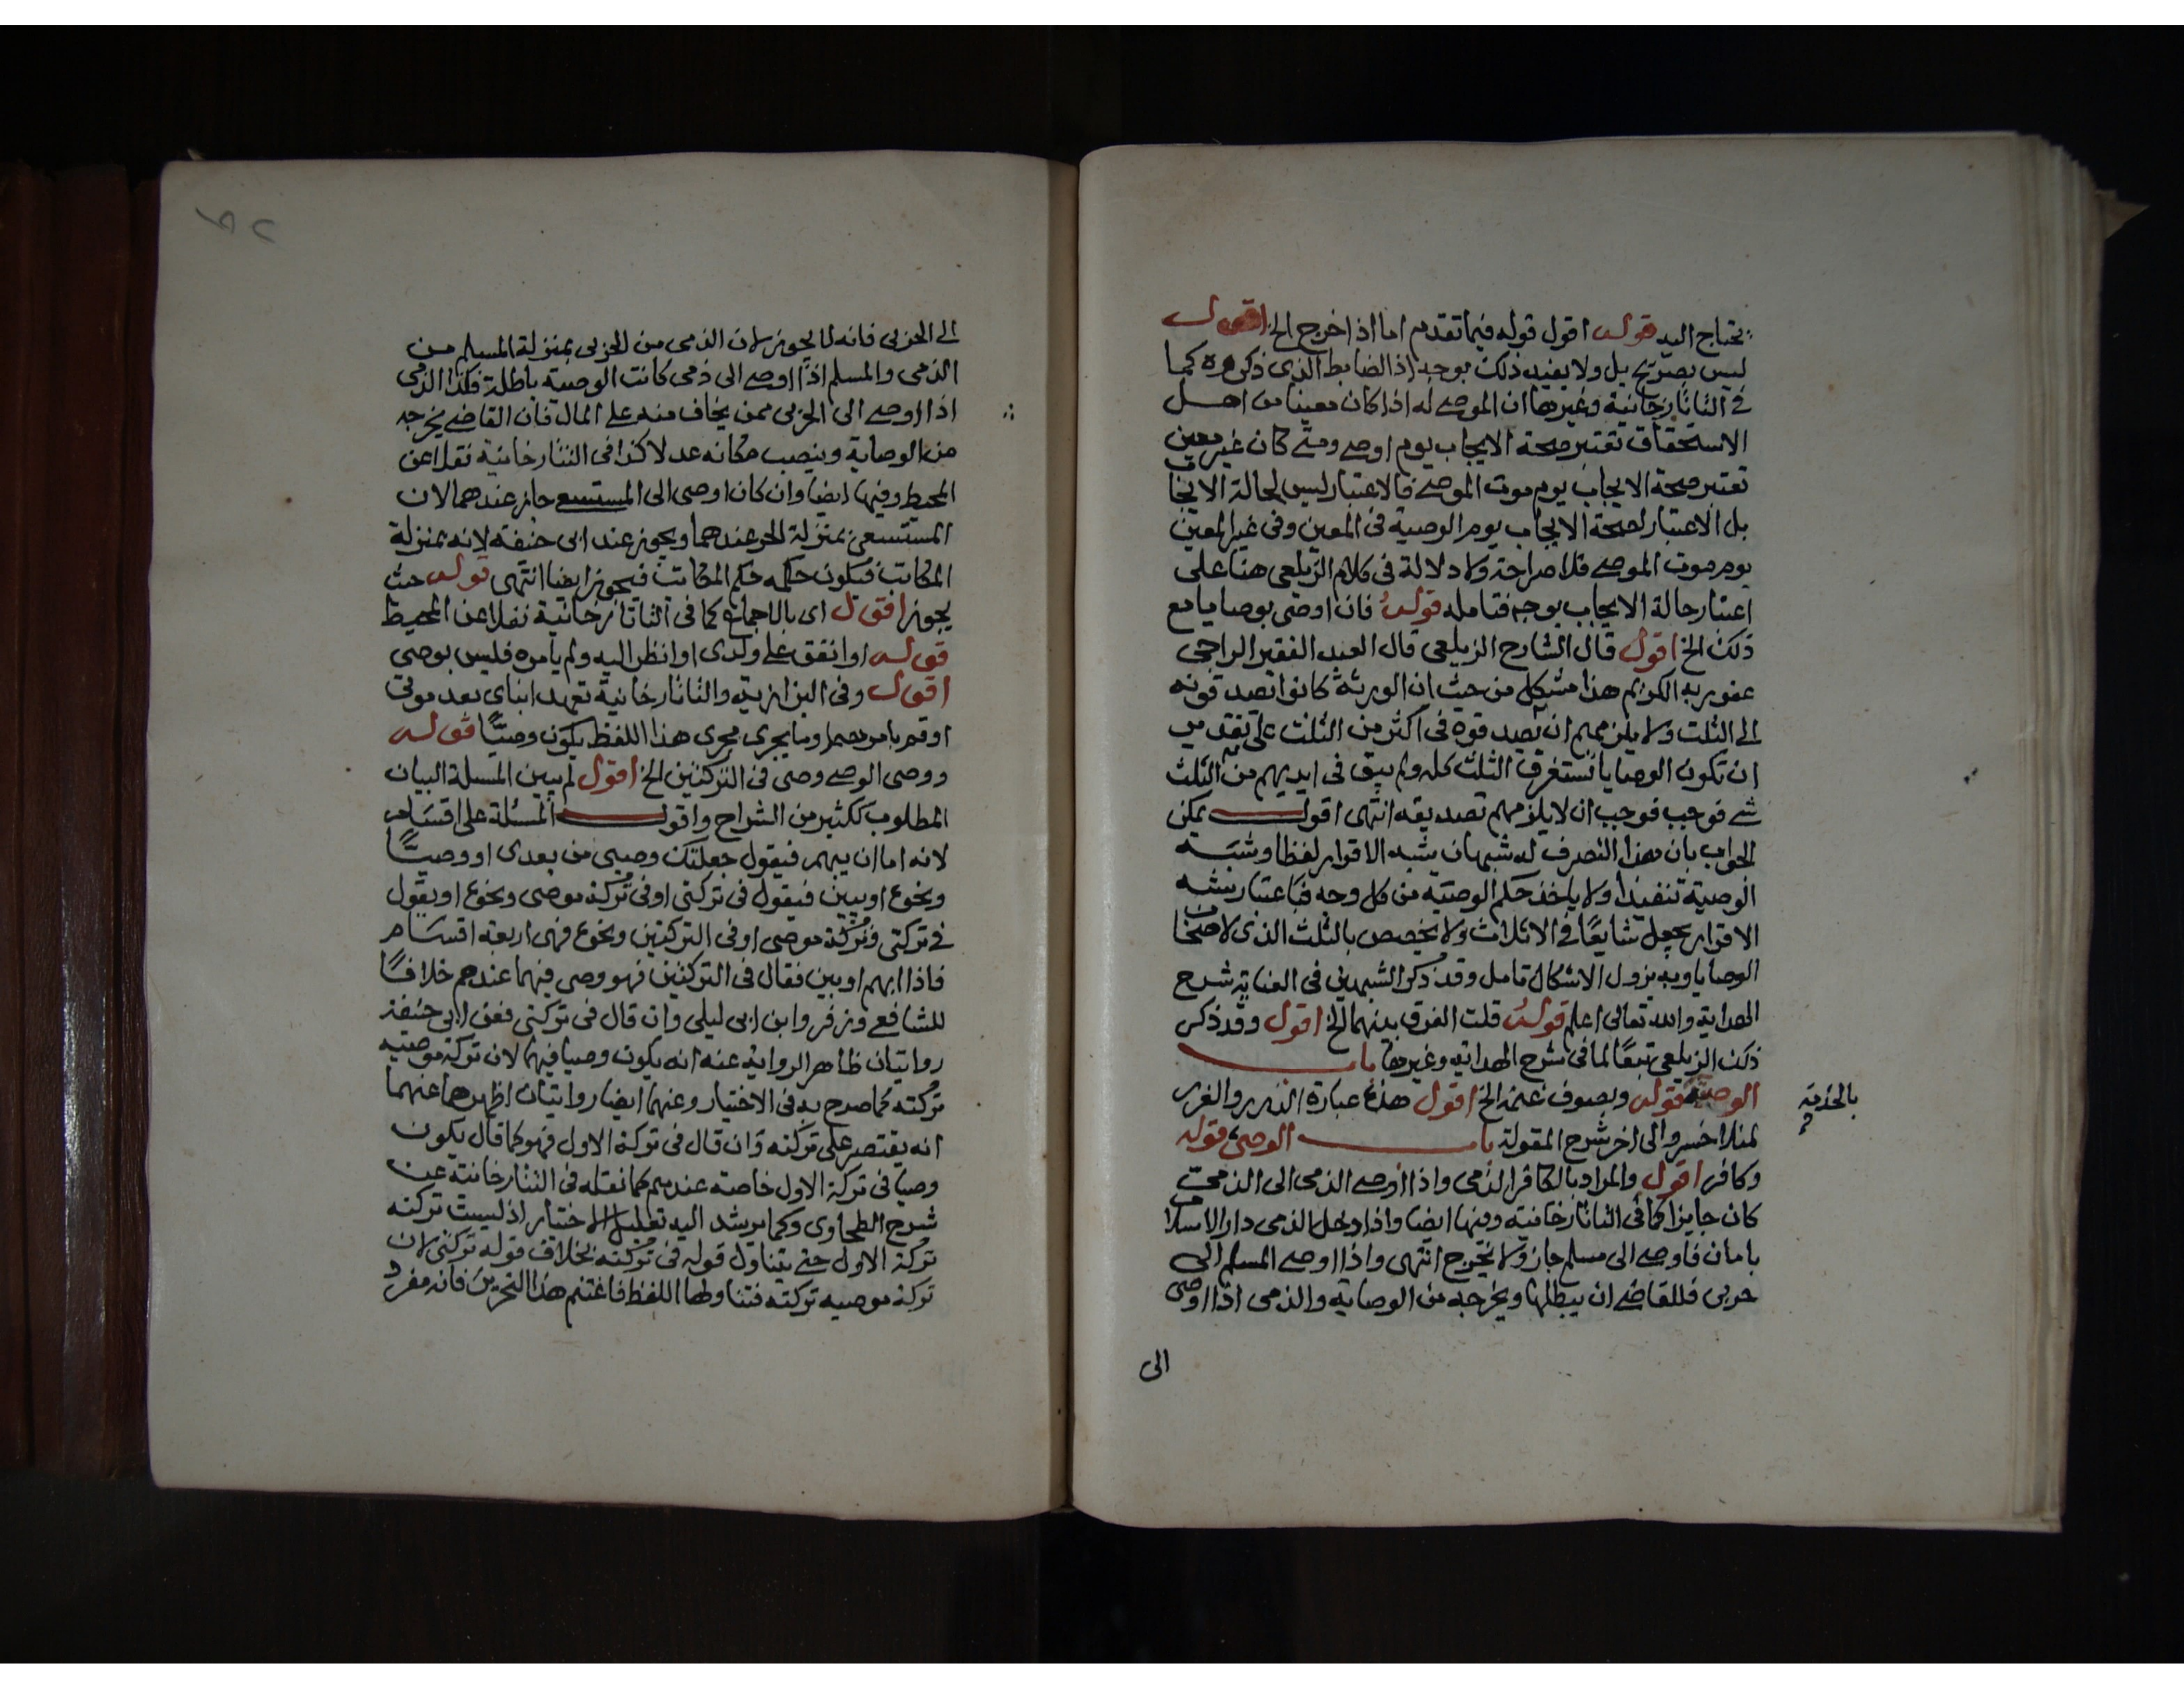 يحتاج اليه قوله اقول قوله فيما تقدم اما اذا خرج الخ اقول
ليس بصريح بل ولا يفيد ذلك بوجه اذ الضابط الذي ذكروه كما
في التاتارخانية وغيرها ان الموصى له اذا كان معينا من اهل
الاستحقاق تعتبر صحة الايجاب يوم اوصى ومتى كان غير معين
تعتبر صحة الايجاب يوم موت الموصى فالاعتبار ليس لحالة الايجاب
بل الاعتبار لصحة الايجاب يوم الوصية في المعين وفي غير المعين
يوم موت الموصى فلا صراحة ولا دلالة في كلام الزيلعي هنا على
اعتبار حالة الايجاب بوجه فتامله قوله فان اوصى بوصايا مع
ذلك الخ اقول قال الشارح الزيلعي قال العبد الفقير الراجي
عفو ربه الكريم هذا مشكل من حيث ان الورثة كانوا تصدقونه
الى الثلث ولا يلزمهم ان تصدقوه في اكثر من الثلث على تقدير
ان تكون الوصايا تستغرق الثلث كله ولم يبق في ايديهم من الثلث
شي فوجب فوجب ان لا يلزمهم تصديقه انتهى اقول يمكن
الجواب بان هذا التصرف له شبهان شبه الاقرار لفظا وشبه
الوصية تنفيذا ولا ياخذ حكم الوصية من كل وجه فباعتبار شبه
الاقرار يجعل شايعا في الاثلاث ولا يخصص بالثلث الذي لاصحاب
الوصايا وبه يزول الاشكال تامل وقد ذكر الشبهين في العناية شرح
الهداية والله تعالى اعلم قوله قلت الفرق بينهما الخ اقول وقد ذكر
ذلك الزيلعي تبعا لما في شرح الهداية وغيرها باب
الوصية قوله وبصوف غنمه الخ اقول هذه عبارة الدرر والغرر
بالخدمة
لمنلا خسرو الى اخر شرح المقولة باب الوصي قوله
وكافر اقول والمراد بالكافر الذمي واذا اوصى الذمي الى الذمي
كان جايزا كما في التاتارخانية وفيها ايضا واذا دخل الذمي دار الاسلام
بامان فاوصى الى مسلم جاز ولا يخرج انتهى واذا اوصى المسلم الى
حربي فللقاضي ان يبطلها ويخرجه من الوصاية والذمي اذا اوصى
الى
الى الحربي فانه لا يجوز لان الذمي من الحربي بمنزلة المسلم من
الذمي والمسلم اذا اوصى الى ذمي كانت الوصية باطلة فكذا الذمي
اذا اوصى الى الحربي ممن يخاف منه على المال فان القاضي يخرجه
من الوصاية وينصب مكانه عدلا كذا في التتارخانية نقلا عن
المحيط وفيها ايضا وان كان اوصى الى المستسع جاز عندهما لان
المستسعى بمنزلة الحر عندهما ويجوز عند ابي حنيفة لانه بمنزلة
المكاتب فيكون حكمه حكم المكاتب فيجوز ايضا انتهى قوله حيث
يجوز اقول اي بالاجماع كما في التاتارخانية نقلا عن المحيط
قوله او انفق على ولدي او انظر اليه ولم يامره فليس بوصي
اقول وفي البزازية والتاتارخانية تعهد ابناي بعد موتي
او قم بامرهما وما يجري مجرى هذا اللفظ يكون وصيا قوله
ووصي الوصي وصي في التركتين الخ اقول لم يبين المسلة البيان
المطلوب ككثير من الشراح واقول المسئلة على اقسام
لانه اما ان يبهم فيقول جعلتك وصيي من بعدي او وصيا
ونحوه او يبين فيقول في تركتي او في تركة موصى ونحوه او يقول
في تركتي وتركة موصى او في التركتين ونحوه فهي اربعة اقسام
فاذا ابهم او بين فقال في التركتين فهو وصي فيهما عندهم خلافا
للشافعي وزفر وابن ابي ليلى وان قال في تركتي فعن ابي حنيفة
روايتان ظاهر الرواية عنه انه يكون وصيا فيهما لان تركة موصيه
تركته كما صرح به في الاختيار وعنهما ايضا روايتان اظهرهما عنهما
انه يقتصر على تركته وان قال في تركة الاول فهو كما قال يكون
وصيا في تركة الاول خاصة عندهم كما نقله في التتارخانية عن
شرح الطحاوي وكما يرشد اليه تعليل الاختيار اذ ليست تركته
تركة الاول حتى يتناول قوله في تركته بخلاف قوله تركتي لان
تركة موصيه تركته فتناولها اللفظ فاغتنم هذا التحرير فانه مفرد